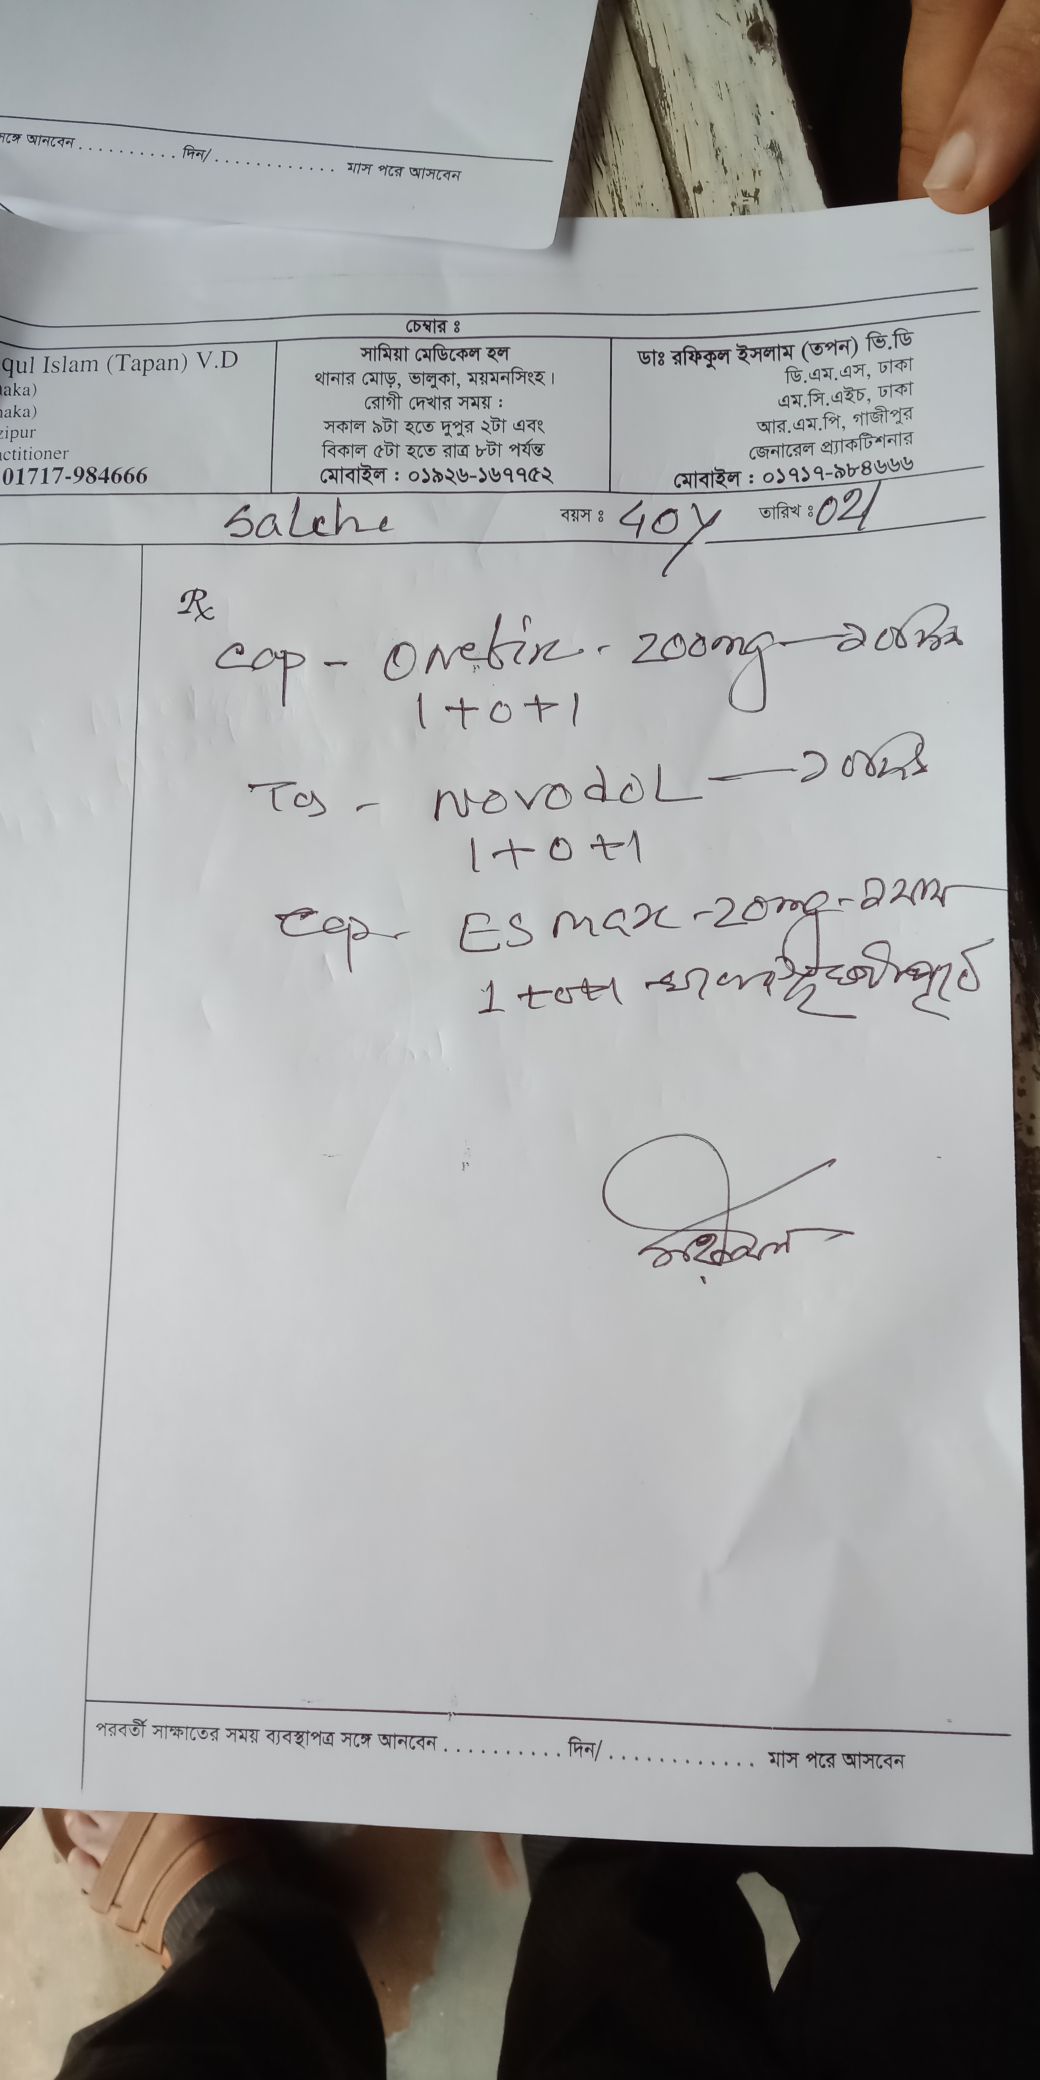 সঙ্গে আনবেন . . . . . . . . . . দিন/ . . . . . . . . . . . . মাস পরে আসবেন
চেম্বার ঃ
qul Islam (Tapan) V.D
aka)
aka)
zipur
actitioner
01717-984666
সামিয়া মেডিকেল হল
থানার মোড়, ভালুকা, ময়মনসিংহ।
রোগী দেখার সময় :
সকাল ৯টা হতে দুপুর ২টা এবং
বিকাল ৫টা হতে রাত্র ৮টা পর্যন্ত
মোবাইল : ০১৯২৬-১৬৭৭৫২
ডাঃ রফিকুল ইসলাম (তপন) ভি.ডি
ডি.এম.এস, ঢাকা
এম.সি.এইচ, ঢাকা
আর.এম.পি, গাজীপুর
জেনারেল প্র্যাকটিশনার
মোবাইল : ০১৭১৭-৯৮৪৬৬৬
Salehe বয়স ঃ 40y তারিখ ঃ 02/
Rx
Cap - Onefix - 200mg
1+0+1
Novodol
1+0+1
Cap - ESmax - 20mg
1+0+1
পরবর্তী সাক্ষাতের সময় ব্যবস্থাপত্র সঙ্গে আনবেন . . . . . . . . . . দিন/ . . . . . . . . . . . . মাস পরে আসবেন